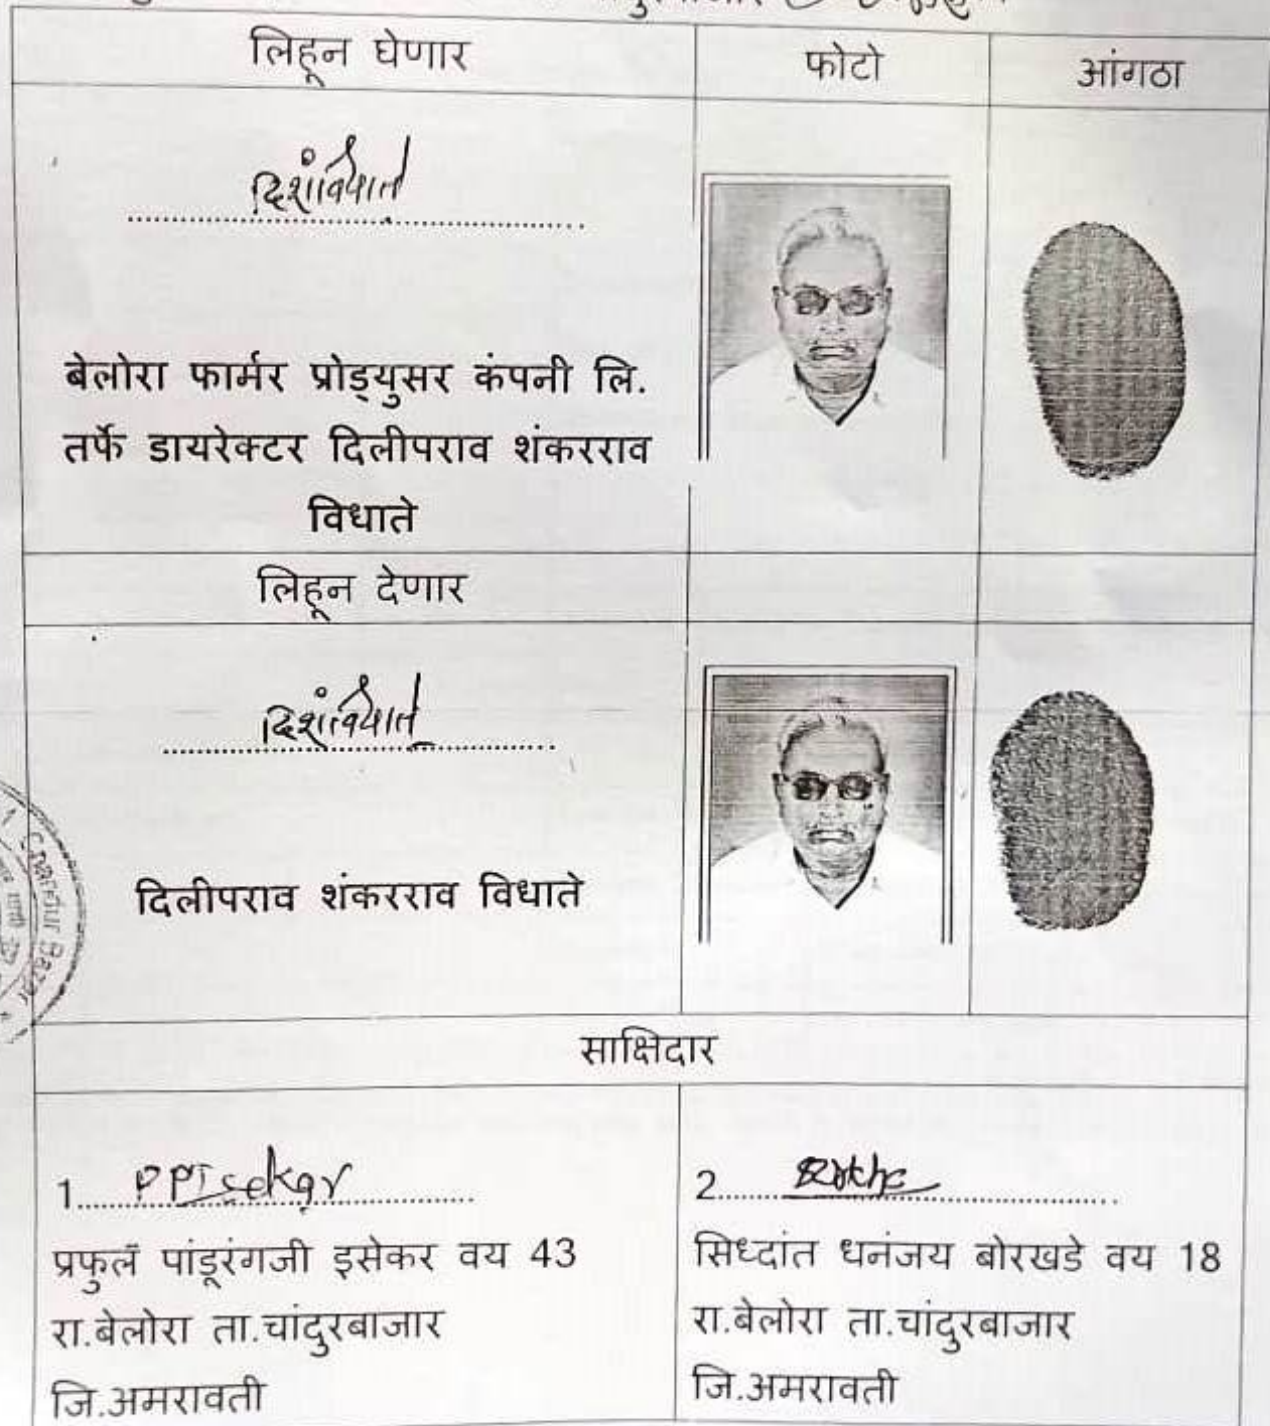 लिहून घेणार फोटो आंगठा
दिशंविधाते
बेलोरा फार्मर प्रोड्युसर कंपनी लि.
तर्फे डायरेक्टर दिलीपराव शंकरराव
विधाते
लिहून देणार
दिशंविधाते
दिलीपराव शंकरराव विधाते
Chandur Bazar
साक्षिदार
1. P P Isekar
प्रफुल पांडूरंगजी इसेकर वय 43
रा.बेलोरा ता.चांदुरबाजार
जि.अमरावती
2.
सिध्दांत धनंजय बोरखडे वय 18
रा.बेलोरा ता.चांदुरबाजार
जि.अमरावती